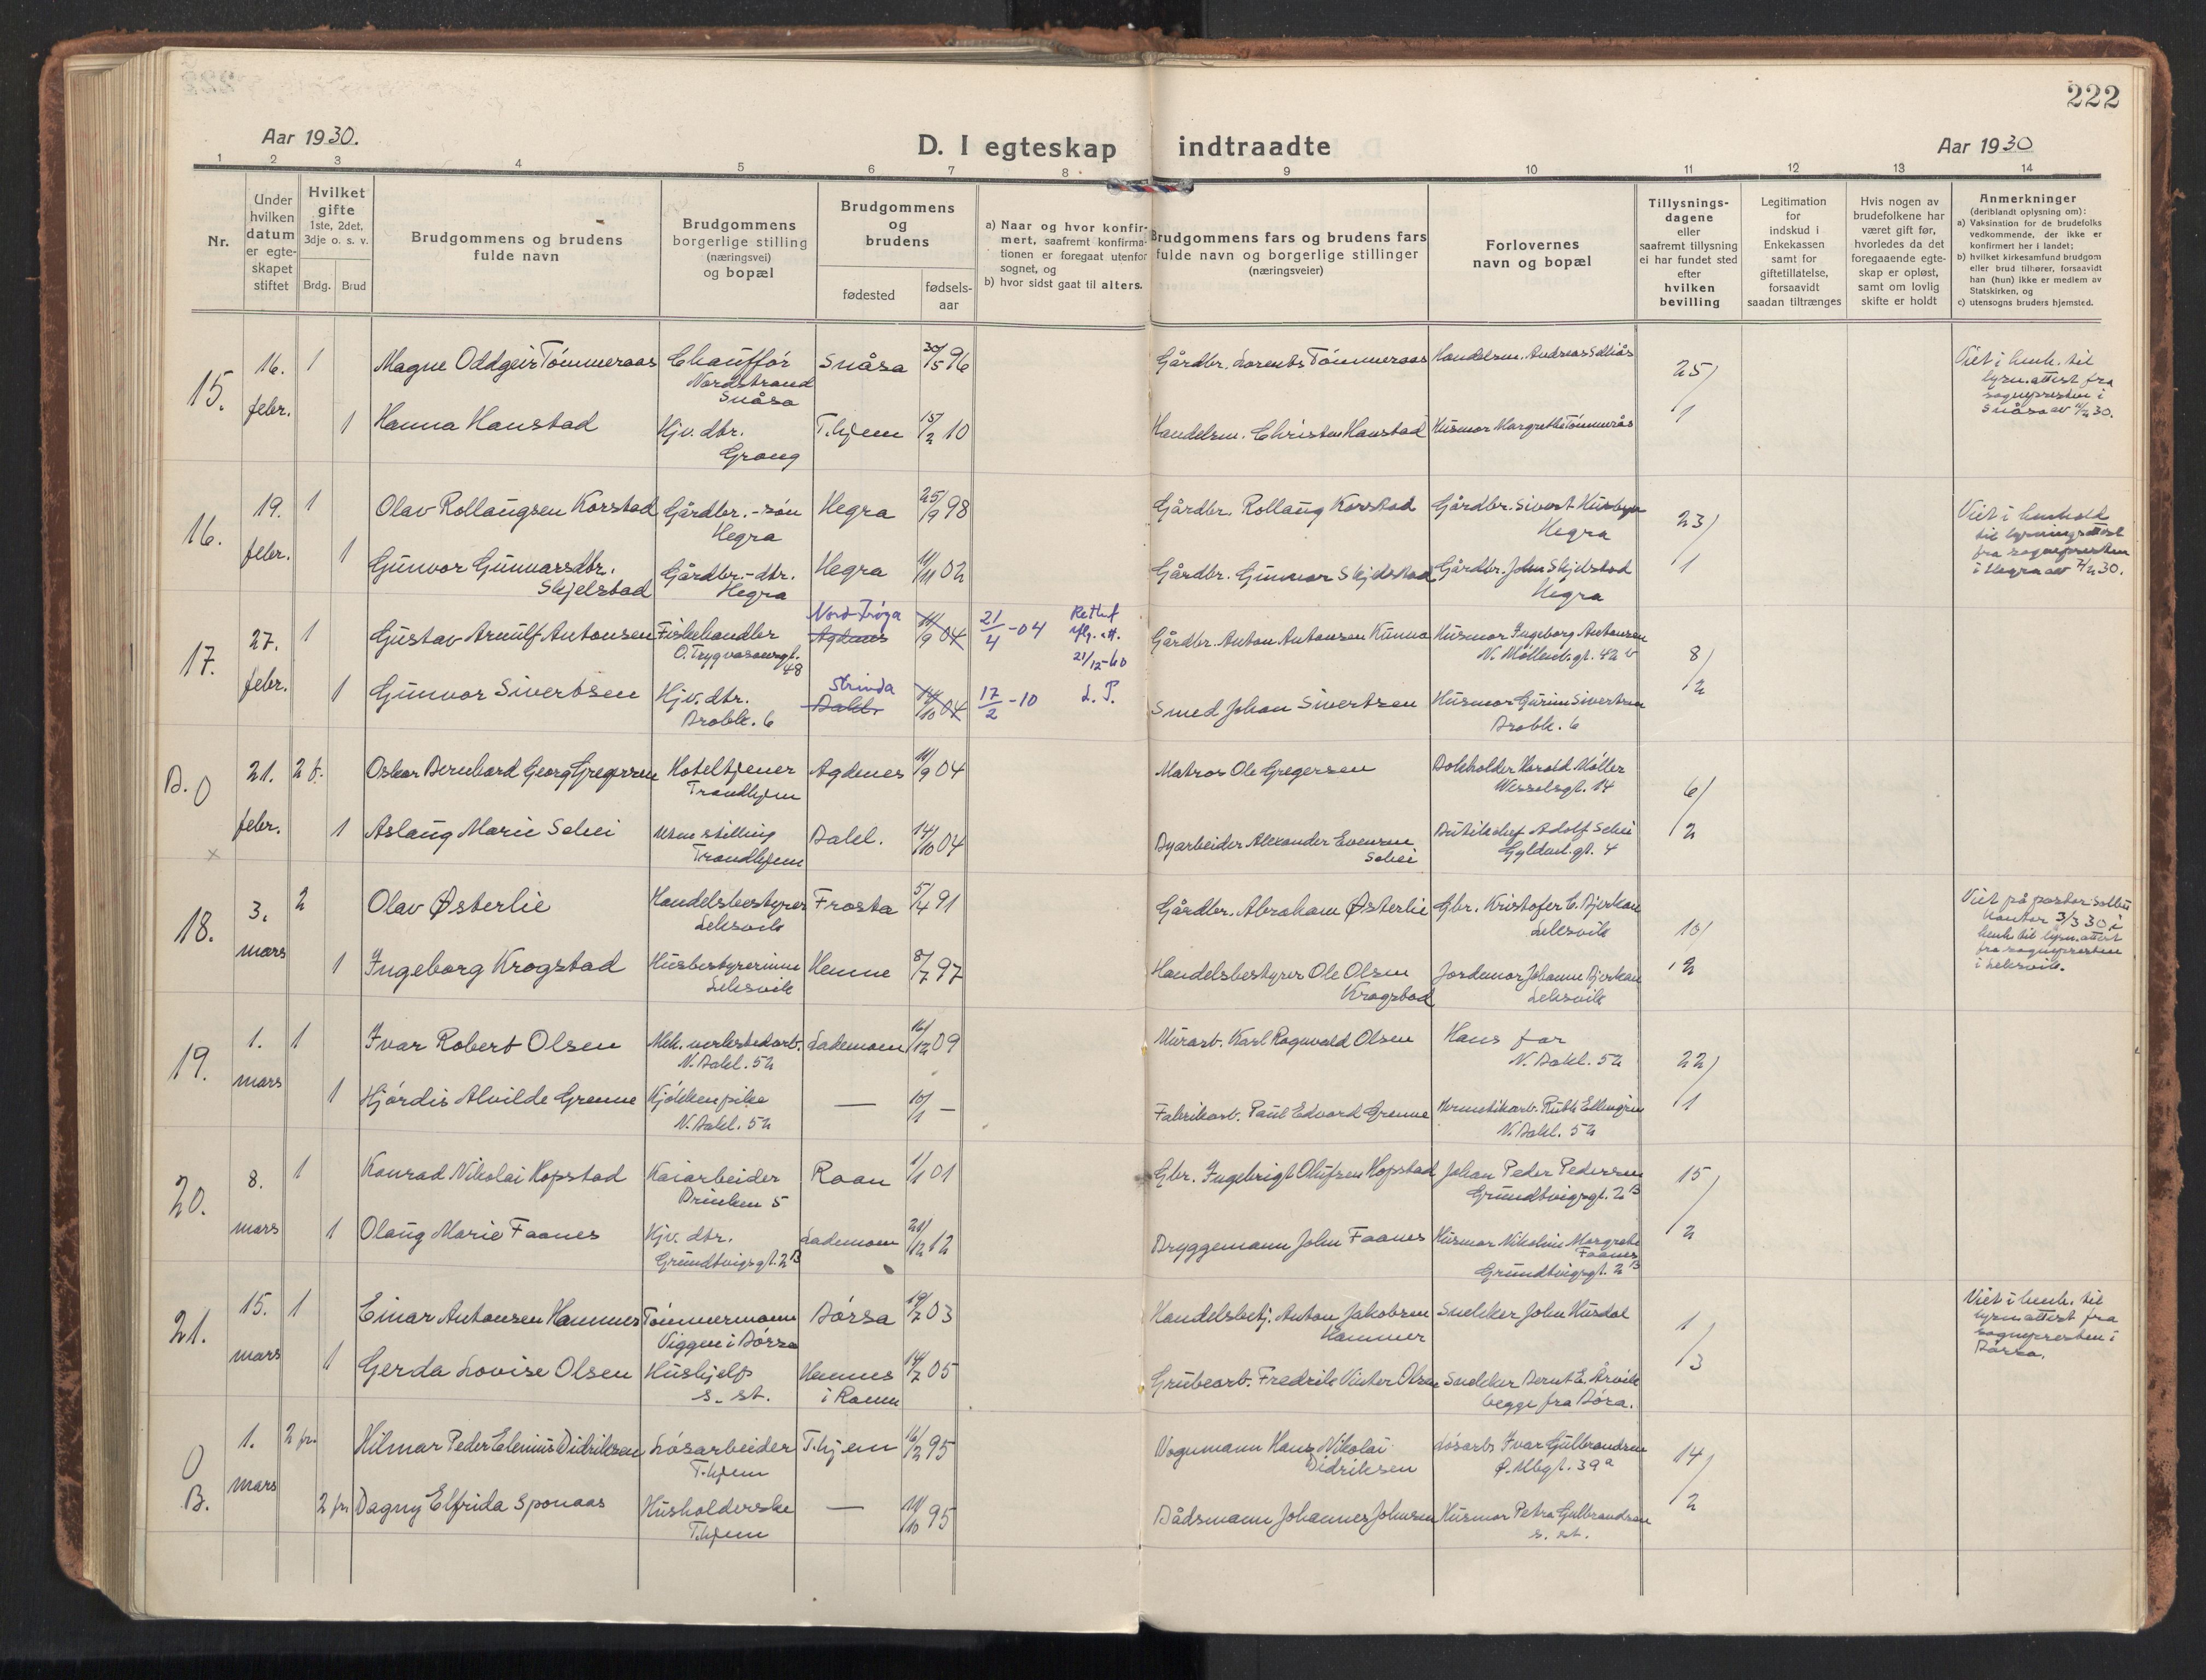 222
Aar 1930.
D. I egteskap indtraadte
Aar 1930
1 2 3 4 5 6 7 8 9 10 11 12 13 14
Nr.
Under
hvilken
datum
er egte-
skapet
stiftet
Hvilket
gifte
1ste, 2det,
3dje o. s. v.
Brdg. Brud
Brudgommens og brudens
fulde navn
Brudgommens
borgerlige stilling
(næringsvei)
og bopæl
Brudgommens
og
brudens
fødested
fødsels-
aar
a) Naar og hvor konfir-
mert, saafremt konfirma-
tionen er foregaat utenfor
sognet, og
b) hvor sidst gaat til alters.
Brudgommens fars og brudens fars
fulde navn og borgerlige stillinger
(næringsveier)
Forlovernes
navn og bopæl
Tillysnings-
dagene
eller
saafremt tillysning
ei har fundet sted
efter
hvilken
bevilling
Legitimation
for
indskud i
Enkekassen
samt for
giftetillatelse,
forsaavidt
saadan tiltrænges
Hvis nogen av
brudefolkene har
været gift før,
hvorledes da det
foregaaende egte-
skap er opløst,
samt om lovlig
skifte er holdt
Anmerkninger
(deriblandt oplysning om):
a) Vaksination for de brudefolks
vedkommende, der ikke er
konfirmert her i landet;
b) hvilket kirkesamfund brudgom
eller brud tilhører, forsaavidt
han (hun) ikke er medlem av
Statskirken, og
c) utensogns bruders hjemsted.
15. 16. febr. 1 Magne Oddgeir Tömmeraas Chaufför Snåsa 30/5 96 Gårdbr. Lorents Tömmeraas Handelsm. Andreas 25/1 Viet i henh. til
Nordstrand lysn.attest fra
Snåsa sognepresten i
1 Hanna Hanstad Hjv. dtr. T.hjem 15/2 10 Handelsm. Christen Hanstad Husmor Margrethe Tömmerås Snåsa av 30.
Grong
16. 19. febr. 1 Olav Rollaugsen Korstad Gårdbr.-sön Hegra 25/9 98 Gårdbr. Rollaug Korstad Gårdbr. Sivert Husbyn 23/1 Viet i henhold
Hegra Hegra til lysningsattest
1 Gunvor Gunnarsdtr. Gårdbr.-dtr. Hegra 11/11 02 Gårdbr. Gunnar Skjelstad Gårdbr. John Skjelstad fra sognepresten
Skjelstad Hegra Hegra i Hegra av 30.
17. 27. febr. 1 Gustav Arnulf Antonsen Fiskehandler Nord-Fröya Agdenes 11/9 04 21/4-04 Rettet Gårdbr. Anton Antonsen Kunna Husmor Ingeborg Antonsen 8/2
O. Trygvasonsgt. 48 21/12-60 N. Möllenb.gt. 42 b
1 Gunvor Sivertsen Hjv. dtr. Strinda Bakl. 14/10 04 17/2-10 L. P. Smed Johan Sivertsen Husmor Gurine Sivertsen
Brobk. 6 Brobk. 6
B. O 21. febr. 2 f. Oskar Bernhard Georg Gregersen Hoteltjener Agdenes 11/9 04 Matros Ole Gregersen Bokholder Harald Möller 6/2
Trondhjem Wesselsgt. 14
x 1 Aslaug Marie Schei Uten stilling Bakl. 14/10 04 Byarbeider Alexander Evensen Butikchef Adolf Schei
Trondhjem Schei Gyldenl.gt. 4
18. 3. mars 2 Olav Østerlie Handelsbestyrer Frosta 5/4 91 Gårdbr. Abraham Østerlie Gbr. Kristofer E. Bjerkan 10/2 Viet på pastor
Leksvik Leksvik kontor 3/3 30 i
1 Ingeborg Krogstad Husbestyrerinne Hemne 8/7 97 Handelsbestyrer Ole Olsen Jordemor Johanne Bjerkan henh. til lysn.attest
Leksvik Krogstad Leksvik fra sognepresten
i Leksvik.
19. 1. mars 1 Ivar Robert Olsen Mek. verkstedarb. Lademoen 16/12 09 Murarb. Karl Ragnvald Olsen Hans far 22/1
N. Bakl. 52 N. Bakl. 52
1 Hjördis Alvilde Grenne Kjökkenpike — 10/1 — Fabrikarb. Paul Edvard Grenne Hermetikarb. Ruth
N. Bakl. 52 N. Bakl. 52
20. 8. mars 1 Konrad Nikolai Hopstad Kaiarbeider Roan 1/1 01 Gbr. Ingebrigt Olufsen Hopstad Johan Peder Pedersen 15/2
Brinken 5 Grundtvigsgt. 2 B
1 Olaug Marie Faanes Hjv. dtr. Lademoen 21/12 12 Bryggemann John Faanes Husmor Nikoline Margrete
Grundtvigsgt. 2 B Faanes
Grundtvigsgt. 2 B
21. 15. mars 1 Einar Antonsen Hammer Tömmermann Börsa 19/7 03 Handelsbetj. Anton Jakobsen Snekker John Husdal 1/3 Viet i henh. til
Viggen i Börsa Hammer lysn.attest fra
1 Gerda Lovise Olsen Hushjelp Hemnes 14/7 05 Grubearb. Fredrik Vinter Olsen Snekker Bernt E. Årvik sognepresten i
s. st. i Ranen begge fra Börsa. Börsa.
O B. 1. mars 2 fr. Hilmar Peder Elenius Didriksen Lösarbeider T.hjem 16/2 95 Vognmann Hans Nikolai Lösarb. Ivar Gulbrandsen 14/2
T.hjem Didriksen Ø. Mbgt. 39 a
2 fr. Dagny Elfrida Sponaas Husholderske — 11/10 95 Bådsmann Johannes Johnsen Husmor Petra Gulbrandsen
T.hjem s. st.